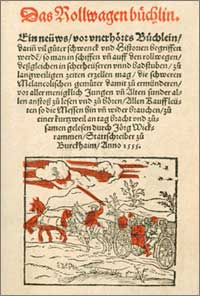 Das Rollwagen büchlin.
Ein neüws / vor vnerhörts Büchlein /
dariñ vil güter schwenck vnd Historien begriffen
werdẽ / so man in schiffen vñ auff den rollwegen /
deßgleichen in scherheüseren vnnd badstuben / zů
langweiligen zeiten erzellen mag / die schweren
Melancolischen gemüter damit zů ermünderen /
vor aller menigklich Jungen vñ Alten sunder al=
len anstoß zů lesen vnd zů hören / Allen Kauffleü=
ten so die Messen hin vñ wider brauchen / zů
einer kurtzweil an tag bracht vnd zů=
samen gelesen durch Jörg Wick=
rammen / Stattschreiber zů
Burckhaim / Anno 1555.